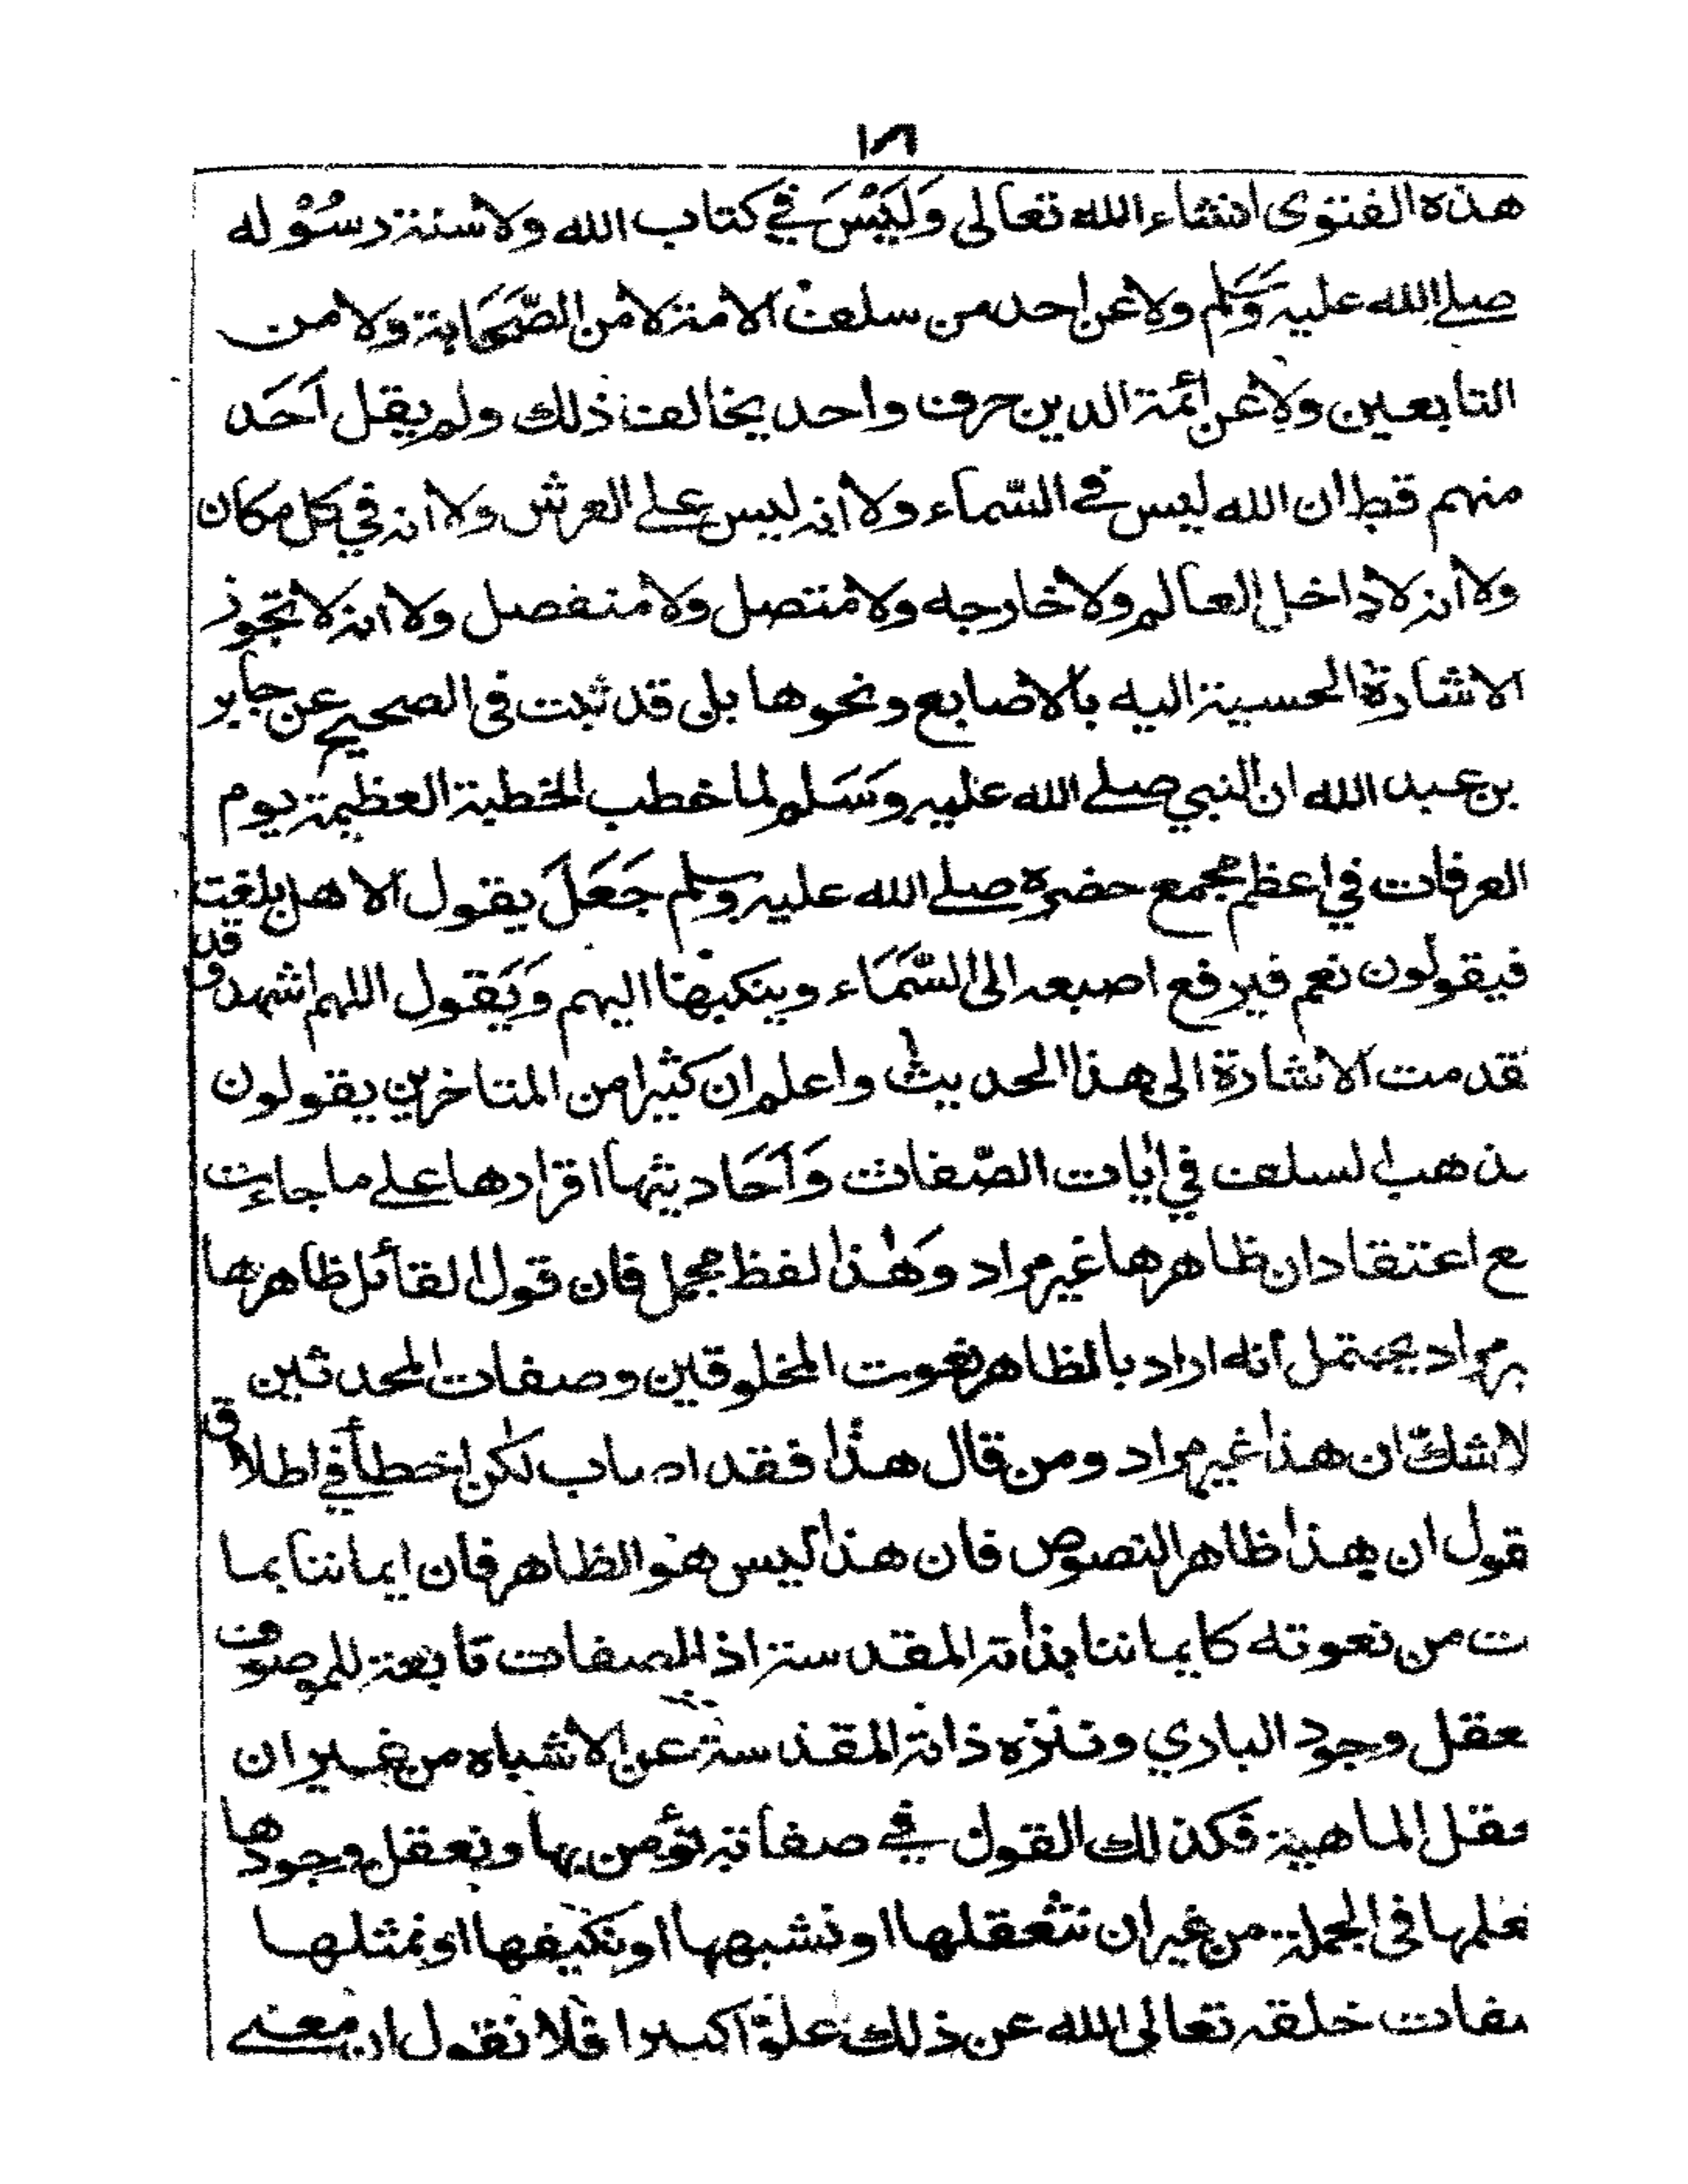 ١٨
هذه الفتوى انشاء الله تعالى وَلَيْسَ في كتاب الله ولا سنة رسُوْله
صلى الله عليه وَسَلم ولا عن احد من سلف الامة لا من الصَّحَابة ولا من
التابعين ولا عن ائمة الدين حرف واحد يخالف ذلك ولم يقل اَحَد
منهم قط ان الله ليس في السّماء ولا انه ليس على العرش ولا انه في كل مكان
ولا انه لا داخل العالم ولا خارجه ولا متصل ولا منفصل ولا انه لا تجوز
الاشارة الحسية اليه بالاصابع ونحوها بلى قد ثبت في الصحيح عن جابر
بن عبد الله ان النبي صلى الله عليه وَسَلم لما خطب الخطبة العظيمة يوم
العرفات في اعظم مجمع حضره صلى الله عليه وسلم جَعَلَ يقول الا هل بلغت
فيقولون نعم فيرفع اصبعه الى السَّمَاء وينكبها اليهم وَيَقول اللهم اشهد وقد
تقدمت الاشارة الى هذا الحديث واعلم ان كثيرا من المتاخرين يقولون
مذهب السلف في ايات الصّفات وَاَحَاديثها اقرارها على ما جاءت
مع اعتقاد ان ظاهرها غير مراد وَهٰذا لفظ مجمل فان قول القائل ظاهرها
غير مراد يحتمل أنه اراد بالظاهر نعوت المخلوقين وصفات المحدثين
لا شكّ ان هذا غير مراد ومن قال هذا فقد اصاب لكن اخطأ في اطلاق
قول ان هذا ظاهر النصوص فان هذا ليس هو الظاهر فان ايماننا بما
ت من نعوته كايماننا بذاته المقدسة اذ الصفات تابعة للموصوف
نعقل وجود الباري وننزه ذاته المقدسة عن الاشباه من غير ان
نعقل الماهية فكذلك القول في صفاته نؤمن بها ونعقل وجودها
نعلمها في الجملة من غير ان نتعقلها او نشبهها او نكيفها او نمثلها
صفات خلقه تعالى الله عن ذلك علوّا كبيرا فلا نقول ان معنى